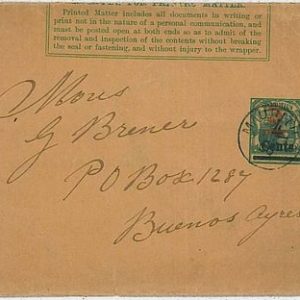 FOR PRINTED MATTER.
Printed Matter includes all documents in writing or
print not in the nature of a personal communication, and
must be posted open at both ends so as to admit of the
removal and inspection of the contents without breaking
the seal or fastening, and without injury to the wrapper.
Mons
G Brener
PO Box 1287
Buenos Ayres
Cents